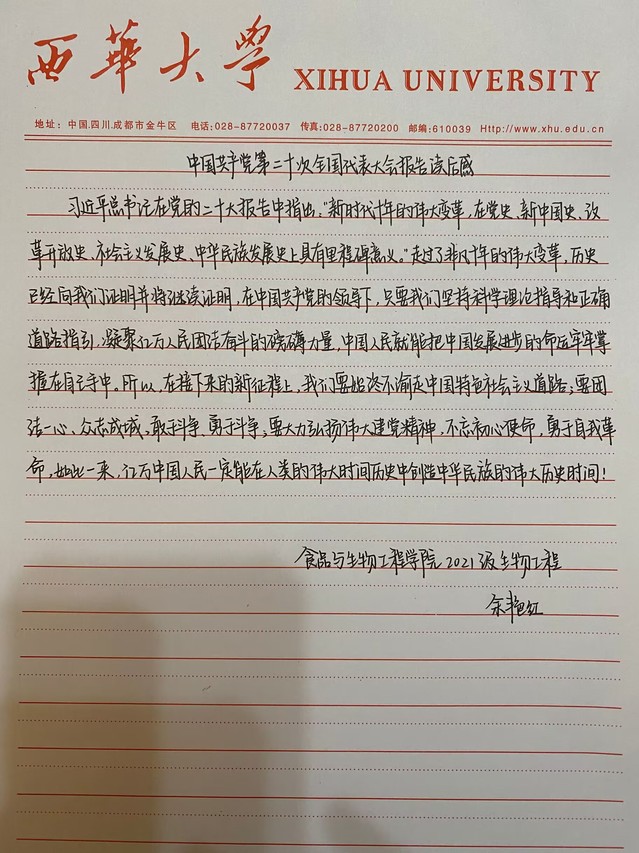 西華大學 XIHUA UNIVERSITY
地址：中国.四川.成都市金牛区 电话:028-87720037 传真:028-87720200 邮编:610039 Http://www.xhu.edu.cn
中国共产党第二十次全国代表大会报告读后感
习近平总书记在党的二十大报告中指出："新时代十年的伟大变革，在党史、新中国史、改
革开放史、社会主义发展史、中华民族发展史上具有里程碑意义。"走过了非凡十年的伟大变革，历史
已经向我们证明并将继续证明，在中国共产党的领导下，只要我们坚持科学理论指导和正确
道路指引，凝聚亿万人民团结奋斗的磅礴力量，中国人民就能把中国发展进步的命运牢牢掌
握在自己手中。所以，在接下来的新征程上，我们要始终不渝走中国特色社会主义道路；要团
结一心、众志成城、敢于斗争、勇于斗争；要大力弘扬伟大建党精神，不忘初心使命，勇于自我革
命，如此一来，亿万中国人民一定能在人类的伟大时间历史中创造中华民族的伟大历史时间！
食品与生物工程学院2021级生物工程
余艳红